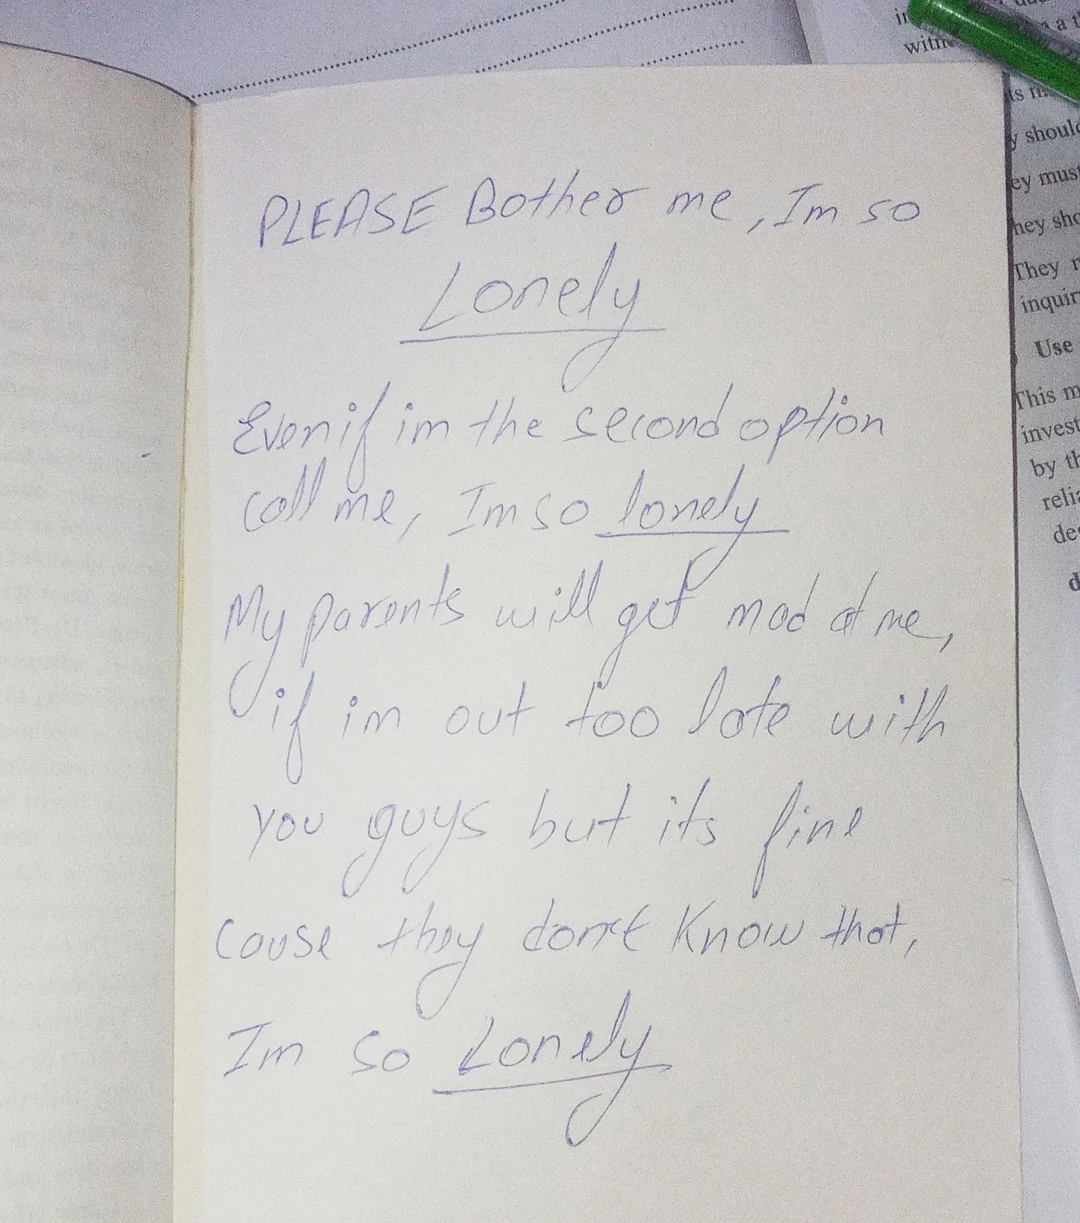 PLEASE Bother me, Im so
Lonely
Even if im the second option
call me, Im so lonely
My parents will get mad at me,
if im out too late with
you guys but its fine
cause they don't know that,
Im so Lonely
with
a t
y should
ey must
hey sho
They r
inquir
Use
This m
invest
by th
relia
de
d